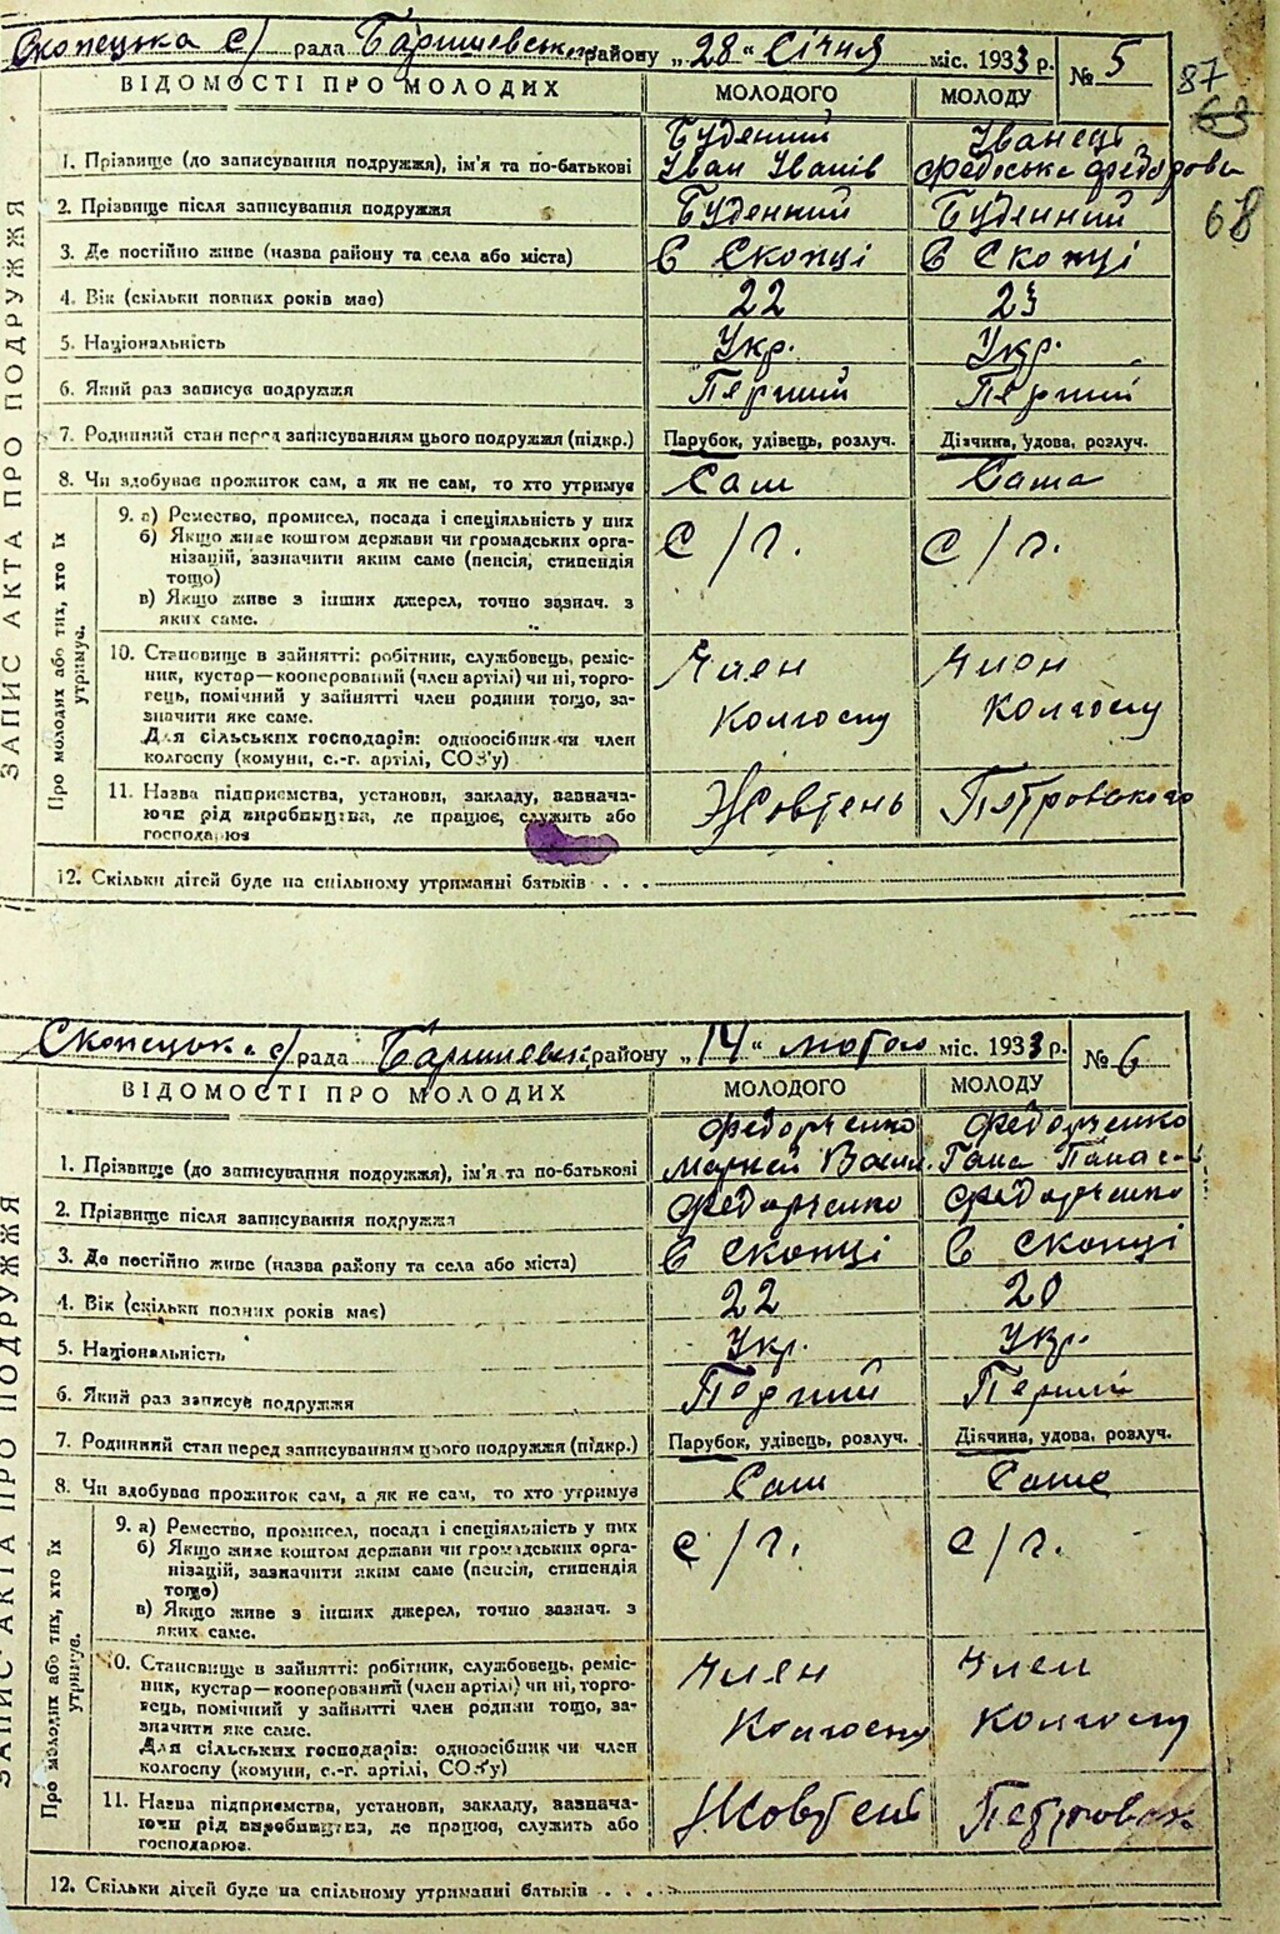 Скопецька с/ рада Баришевськ. району „28“ Січня міс. 1933 р. № 5
87
63
68
ЗАПИС АКТА ПРО ПОДРУЖЖЯ
ВІДОМОСТІ ПРО МОЛОДИХ МОЛОДОГО МОЛОДУ
Буденний Іванець
1. Прізвище (до записування подружжя), ім'я та по-батькові Іван Іванів Федоська Федорова
2. Прізвище після записування подружжя Буденний Буденний
3. Де постійно живе (назва району та села або міста) С Скопці С Скопці
4. Вік (скільки повних років має) 22 23
5. Національність Укр. Укр.
6. Який раз записує подружжя Перший Перший
7. Родинний стан перед записуванням цього подружжя (підкр.) Парубок, удівець, розлуч. Дівчина, удова, розлуч.
8. Чи здобуває прожиток сам, а як не сам, то хто утримує Сам Сама
Про молодих або тих, хто їх утримує.
9. а) Ремество, промисел, посада і спеціяльність у них
б) Якщо живе коштом держави чи громадських орга- С/г. С/г.
нізацій, зазначити яким саме (пенсія, стипендія
тощо)
в) Якщо живе з інших джерел, точно зазнач. з
яких саме.
10. Становище в зайнятті: робітник, службовець, реміс- Член Член
ник, кустар—кооперований (член артілі) чи ні, торго-
вець, помічний у зайнятті член родини тощо, за- Колгоспу Колгоспу
значити яке саме.
Для сільських господарів: одноосібник чи член
колгоспу (комуни, с.-г. артілі, СОЗ'у)
11. Назва підприємства, установи, закладу, зазнача- Жовтень Петровського
ючи рід виробництва, де працює, служить або
господарює
12. Скільки дітей буде на спільному утриманні батьків . . .
Скопецька с/ рада Баришевськ. району „14“ лютого міс. 1933 р. № 6
ЗАПИС АКТА ПРО ПОДРУЖЖЯ
ВІДОМОСТІ ПРО МОЛОДИХ МОЛОДОГО МОЛОДУ
Федорченко Федорченко
1. Прізвище (до записування подружжя), ім'я та по-батькові Маркей Васил. Гана Панас
2. Прізвище після записування подружжя Федорченко Федорченко
3. Де постійно живе (назва району та села або міста) С Скопці С Скопці
4. Вік (скільки повних років має) 22 20
5. Національність Укр. Укр.
6. Який раз записує подружжя Перший Перший
7. Родинний стан перед записуванням цього подружжя (підкр.) Парубок, удівець, розлуч. Дівчина, удова, розлуч.
8. Чи здобуває прожиток сам, а як не сам, то хто утримує Сам Сама
Про молодих або тих, хто їх утримує.
9. а) Ремество, промисел, посада і спеціяльність у них
б) Якщо живе коштом держави чи громадських орга- С/г. С/г.
нізацій, зазначити яким саме (пенсія, стипендія
тощо)
в) Якщо живе з інших джерел, точно зазнач. з
яких саме.
10. Становище в зайнятті: робітник, службовець, реміс- Член Член
ник, кустар—кооперований (член артілі) чи ні, торго-
вець, помічний у зайнятті член родини тощо, за- Колгоспу Колгоспу
значити яке саме.
Для сільських господарів: одноосібник чи член
колгоспу (комуни, с.-г. артілі, СОЗ'у)
11. Назва підприємства, установи, закладу, зазнача- Жовтень Петровськ
ючи рід виробництва, де працює, служить або
господарює.
12. Скільки дітей буде на спільному утриманні батьків . . .